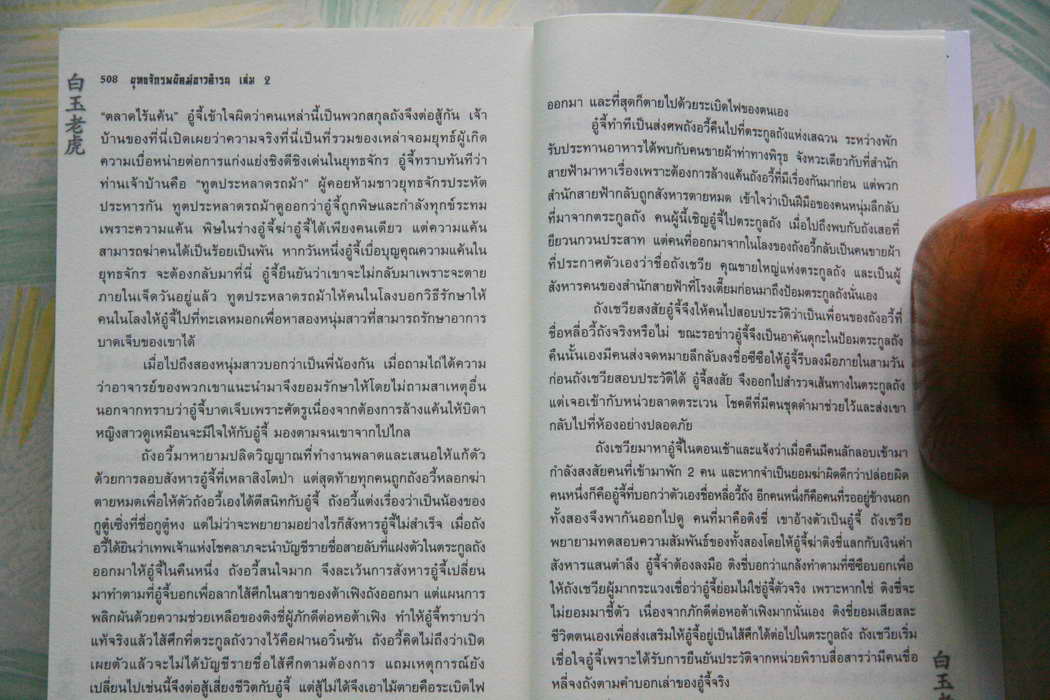 白玉老虎
508 ยุทธจักรพยัคฆ์ขาวคำรณ เล่ม 2
"ตลาดไร้แค้น" อู๋จี้เข้าใจผิดว่าคนเหล่านี้เป็นพวกสกุลถังจึงต่อสู้กัน เจ้า
บ้านของที่นี่เปิดเผยว่าความจริงที่นี่เป็นที่รวมของเหล่าจอมยุทธ์ผู้เกิด
ความเบื่อหน่ายต่อการแก่งแย่งชิงดีชิงเด่นในยุทธจักร อู๋จี้ทราบทันทีว่า
ท่านเจ้าบ้านคือ "ทูตประหลาดรถม้า" ผู้คอยห้ามชาวยุทธจักรประหัต
ประหารกัน ทูตประหลาดรถม้าดูออกว่าอู๋จี้ถูกพิษและกำลังทุกข์ระทม
เพราะความแค้น พิษในร่างอู๋จี้ฆ่าอู๋จี้ได้เพียงคนเดียว แต่ความแค้น
สามารถฆ่าคนได้เป็นร้อยเป็นพัน หากวันหนึ่งอู๋จี้เบื่อบุญคุณความแค้นใน
ยุทธจักร จะต้องกลับมาที่นี่ อู๋จี้ยืนยันว่าเขาจะไม่กลับมาเพราะจะตาย
ภายในเจ็ดวันอยู่แล้ว ทูตประหลาดรถม้าให้คนในโลงบอกวิธีรักษาให้
คนในโลงให้อู๋จี้ไปที่ทะเลหมอกเพื่อหาสองหนุ่มสาวที่สามารถรักษาอาการ
บาดเจ็บของเขาได้
เมื่อไปถึงสองหนุ่มสาวบอกว่าเป็นพี่น้องกัน เมื่อถามไถ่ได้ความ
ว่าอาจารย์ของพวกเขาแนะนำมาจึงยอมรักษาให้โดยไม่ถามสาเหตุอื่น
นอกจากทราบว่าอู๋จี้บาดเจ็บเพราะศัตรูเนื่องจากต้องการล้างแค้นให้บิดา
หญิงสาวดูเหมือนจะมีใจให้กับอู๋จี้ มองตามจนเขาจากไปไกล
ถังอวี้มาหายามปลิดวิญญาณที่ทำงานพลาดและเสนอให้แก้ตัว
ด้วยการลอบสังหารอู๋จี้ที่เหลาสิงโตป่า แต่สุดท้ายทุกคนถูกถังอวี้หลอกฆ่า
ตายหมดเพื่อให้ตัวถังอวี้เองได้ตีสนิทกับอู๋จี้ ถังอวี้แต่งเรื่องว่าเป็นน้องของ
กูตู๋เซิ่งที่ชื่อกูตู๋หง แต่ไม่ว่าจะพยายามอย่างไรก็สังหารอู๋จี้ไม่สำเร็จ เมื่อถัง
อวี้ได้ยินว่าเทพเจ้าแห่งโชคลาภจะนำบัญชีรายชื่อสายลับที่แฝงตัวในตระกูลถัง
ออกมาให้อู๋จี้ในคืนหนึ่ง ถังอวี้สนใจมาก จึงละเว้นการสังหารอู๋จี้เปลี่ยน
มาทำตามที่อู๋จี้บอกเพื่อลากไส้ศึกในสาขาของต้าเฟิงถังออกมา แต่แผนการ
พลิกผันด้วยความช่วยเหลือของติงชี่ผู้ภักดีต่อหอต้าเฟิง ทำให้อู๋จี้ทราบว่า
แท้จริงแล้วไส้ศึกที่ตระกูลถังวางไว้คือฝานอวิ๋นซัน ถังอวี้คิดไม่ถึงว่าเปิด
เผยตัวแล้วจะไม่ได้บัญชีรายชื่อไส้ศึกตามต้องการ แถมเหตุการณ์ยัง
เปลี่ยนไปเช่นนี้จึงต่อสู้เสี่ยงชีวิตกับอู๋จี้ แต่สู้ไม่ได้จึงเอาไม้ตายคือระเบิดไฟ
ออกมา และที่สุดก็ตายไปด้วยระเบิดไฟของตนเอง
อู๋จี้ทำทีเป็นส่งศพถังอวี้คืนไปที่ตระกูลถังแห่งเสฉวน ระหว่างพัก
รับประทานอาหารได้พบกับคนขายผ้าท่าทางพิรุธ จังหวะเดียวกับที่สำนัก
สายฟ้ามาหาเรื่องเพราะต้องการล้างแค้นถังอวี้ที่มีเรื่องกันมาก่อน แต่พวก
สำนักสายฟ้ากลับถูกสังหารตายหมด เข้าใจว่าเป็นฝีมือของคนหนุ่มลึกลับ
ที่มาจากตระกูลถัง คนผู้นี้เชิญอู๋จี้ไปตระกูลถัง เมื่อไปถึงพบกับถังเสอที่
ยียวนกวนประสาท แต่คนที่ออกมาจากในโลงของถังอวี้กลับเป็นคนขายผ้า
ที่ประกาศตัวเองว่าชื่อถังเชวีย คุณชายใหญ่แห่งตระกูลถัง และเป็นผู้
สังหารคนของสำนักสายฟ้าที่โรงเตี๊ยมก่อนมาถึงป้อมตระกูลถังนั่นเอง
ถังเชวียสงสัยอู๋จี้จึงให้คนไปสอบประวัติว่าเป็นเพื่อนของถังอวี้ที่
ชื่อหลี่อวี้ถังจริงหรือไม่ ขณะรอข่าวอู๋จี้จึงเป็นอาคันตุกะในป้อมตระกูลถัง
คืนนั้นเองมีคนส่งจดหมายลึกลับลงชื่อซีซือให้อู๋จี้รีบลงมือภายในสามวัน
ก่อนถังเชวียสอบประวัติได้ อู๋จี้สงสัย จึงออกไปสำรวจเส้นทางในตระกูลถัง
แต่เจอเข้ากับหน่วยลาดตระเวน โชคดีที่มีคนชุดดำมาช่วยไว้และส่งเขา
กลับไปที่ห้องอย่างปลอดภัย
ถังเชวียมาหาอู๋จี้ในตอนเช้าและแจ้งว่าเมื่อคืนมีคนลักลอบเข้ามา
กำลังสงสัยคนที่เข้ามาพัก 2 คน และหากจำเป็นยอมฆ่าผิดดีกว่าปล่อยผิด
คนหนึ่งก็คืออู๋จี้ที่บอกว่าตัวเองชื่อหลี่อวี้ถัง อีกคนหนึ่งก็คือคนที่รออยู่ข้างนอก
ทั้งสองจึงพากันออกไปดู คนที่มาคือติงชี่ เขาอ้างตัวเป็นอู๋จี้ ถังเชวีย
พยายามทดสอบความสัมพันธ์ของทั้งสองโดยให้อู๋จี้ฆ่าติงชี่แลกกับเงินค่า
สังหารแสนตำลึง อู๋จี้จำต้องลงมือ ติงชี่บอกว่าแกล้งทำตามที่ซีซือบอกเพื่อ
ให้ถังเชวียผู้มากระแวงเชื่อว่าอู๋จี้ย่อมไม่ใช่อู๋จี้ตัวจริง เพราะหากใช่ ติงชี่จะ
ไม่ยอมมาชี้ตัว เนื่องจากภักดีต่อหอต้าเฟิงมากนั่นเอง ติงชี่ยอมเสียสละ
ชีวิตตนเองเพื่อส่งเสริมให้อู๋จี้อยู่เป็นไส้ศึกได้ต่อไปในตระกูลถัง ถังเชวียเริ่ม
เชื่อใจอู๋จี้เพราะได้รับการยืนยันประวัติจากหน่วยพิราบสื่อสารว่ามีคนชื่อ
หลี่จงถังตามคำบอกเล่าของอู๋จี้จริง
白玉